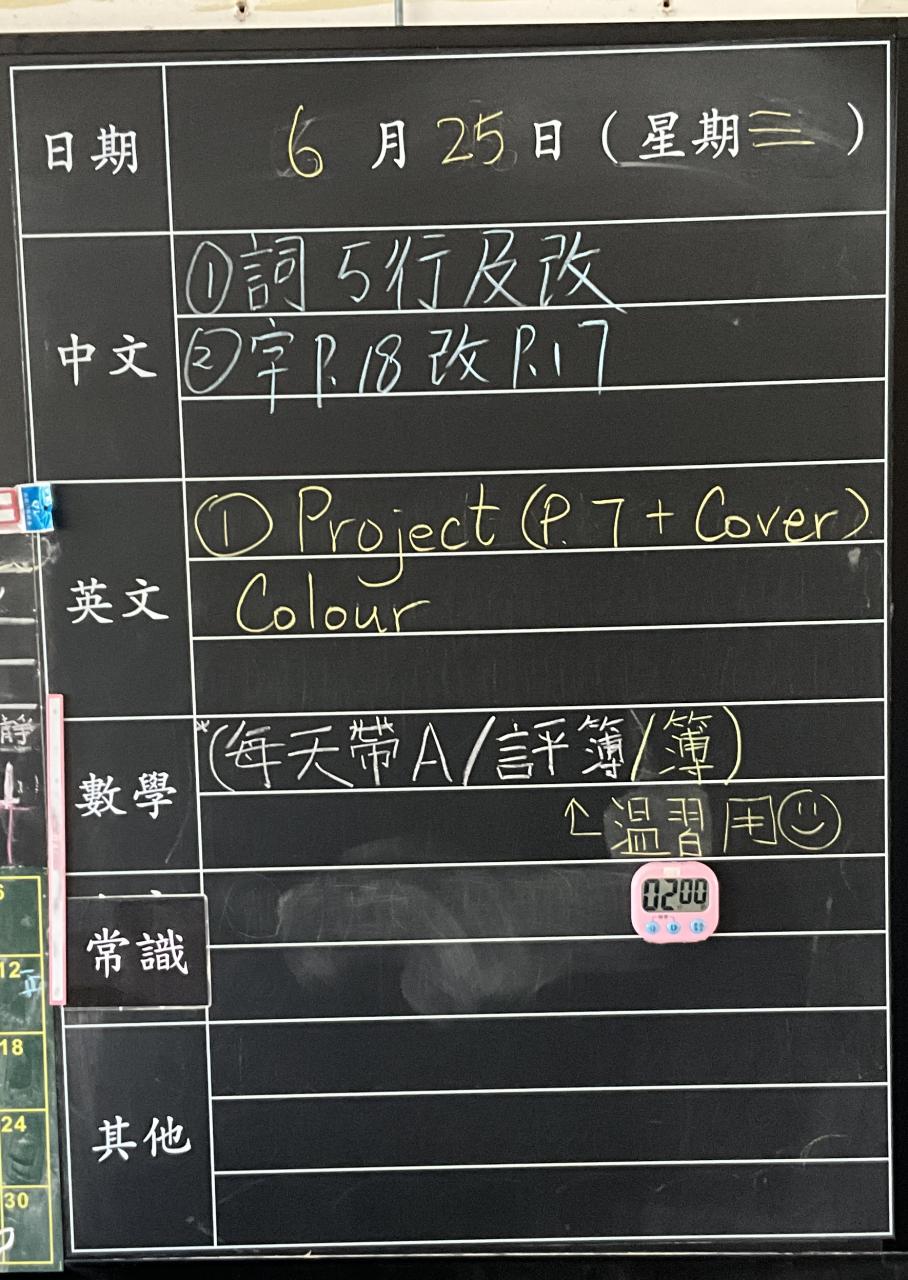 日期 6月25日(星期三)
中文 ①詞5行及改
②字P.18改P.17
英文 ① Project (P.7 + Cover)
Colour
數學 *(每天帶A/評簿/簿)
↑溫習用☺
02 00
常識
其他
靜
6
12
18
24
30